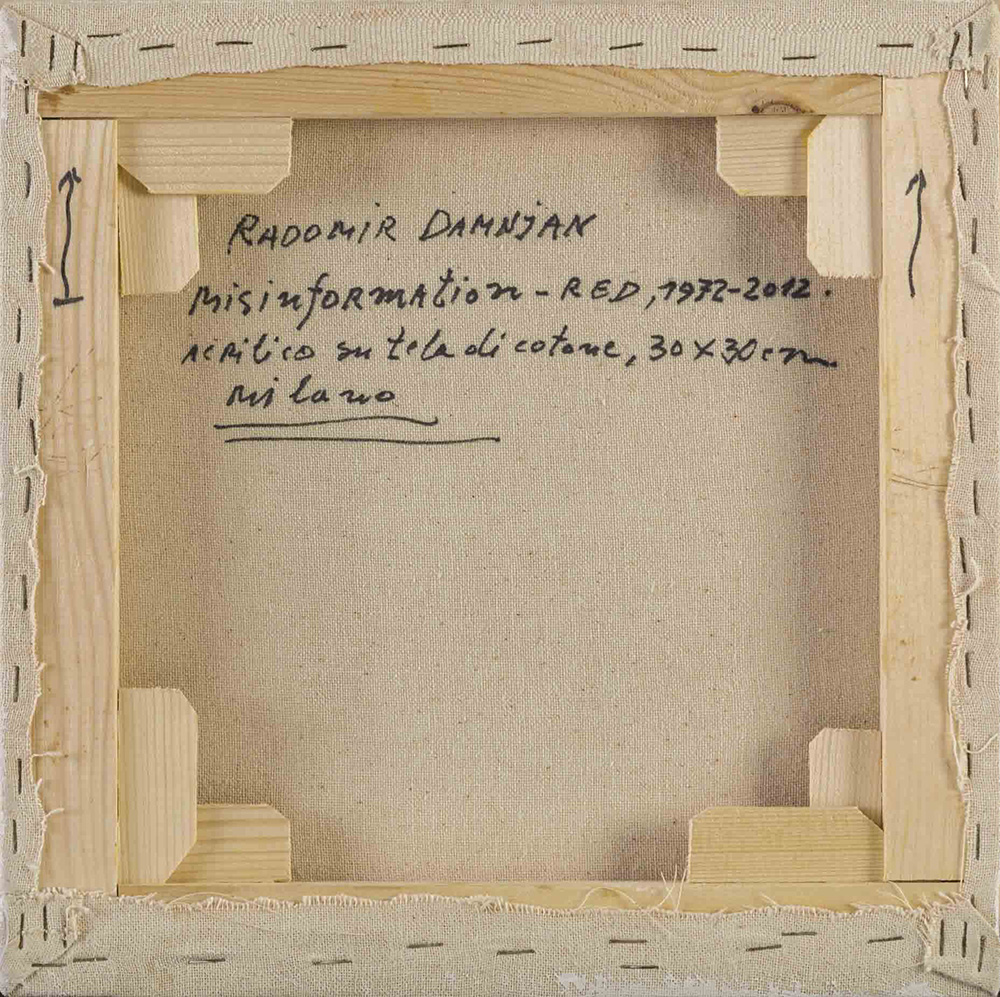 RADOMIR DAMNJAN
Misinformation - RED, 1972-2012.
Acrilico su tela di cotone, 30X30cm
Milano